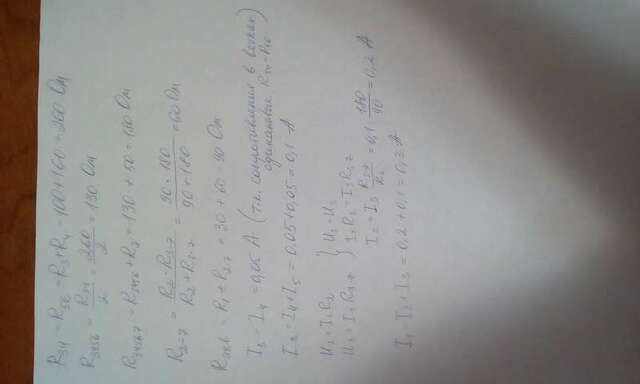 R34 = R56 = R3+R4 = 100+160 = 260 Ом
R3456 = R34/2 = 260/2 = 130 Ом
R34567 = R3456 + R7 = 130 + 50 = 180 Ом
R2-7 = R2·R3-7/R2+R3-7 = 90·180/90+180 = 60 Ом
Rэкв = R1 + R2-7 = 30 + 60 = 90 Ом
I5 = I4 = 0,05 А (т.к. сопротивления в ветвях
одинаковые
I3 = I4+I5 = 0,05+0,05 = 0,1 А
U2 = I2R2 } U2 = U3
U3 = I3R3-7 } I2R2 = I3R3-7
I2 = I3 R3-7/R2 = 0,1 180/90 = 0,2 А
I1 = I2 + I3 = 0,2 + 0,1 = 0,3 А